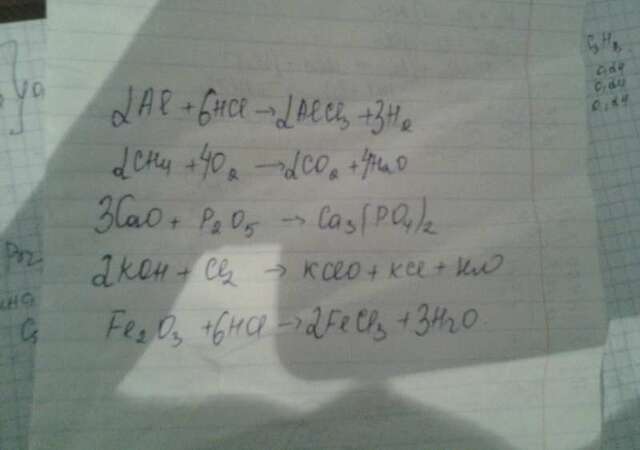 2Al + 6HCl → 2AlCl3 + 3H2
2CH4 + 4O2 → 2CO2 + 4H2O
3CaO + P2O5 → Ca3(PO4)2
2KOH + Cl2 → KClO + KCl + H2O
Fe2O3 + 6HCl → 2FeCl3 + 3H2O
C3H8
0,24
0,24
0,24